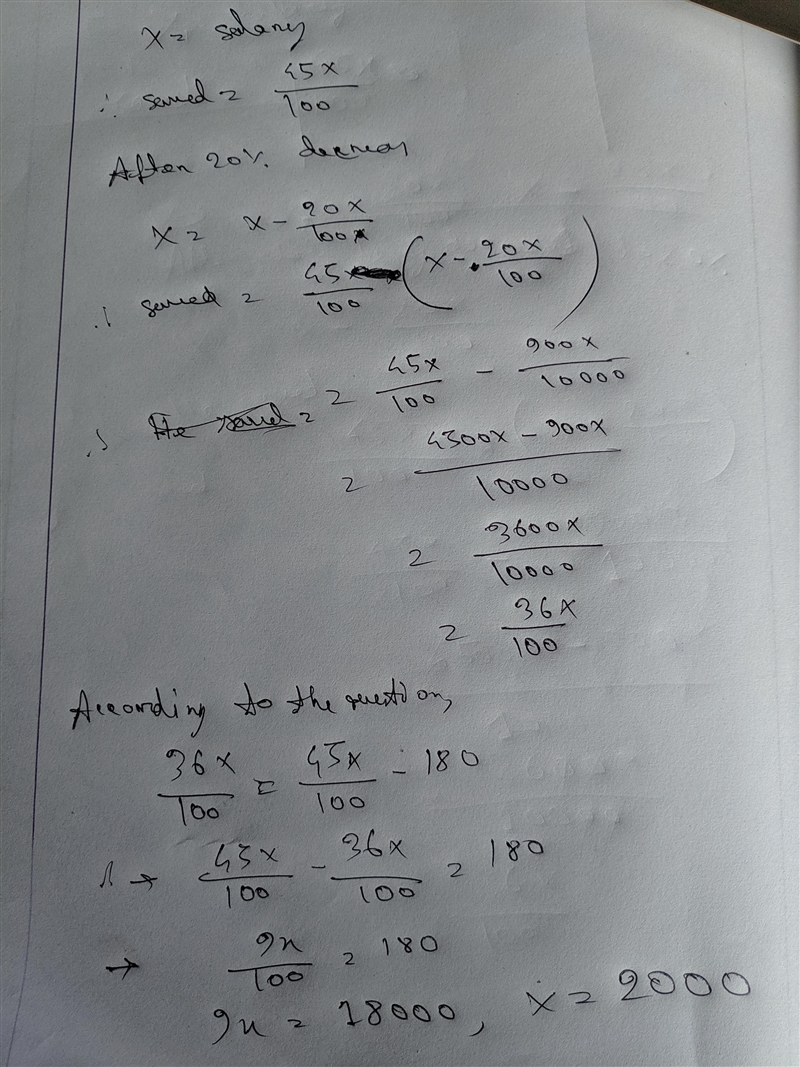 x = salary
∴ saved = 45x/100
After 20% decreas
x = x - 20x/100
∴ saved = 45/100 (x - 20x/100)
∴ = 45x/100 - 900x/10000
= 4500x - 900x/10000
= 3600x/10000
= 36x/100
According to the question,
36x/100 = 45x/100 - 180
→ 45x/100 - 36x/100 = 180
→ 9x/100 = 180
9x = 18000, x = 2000